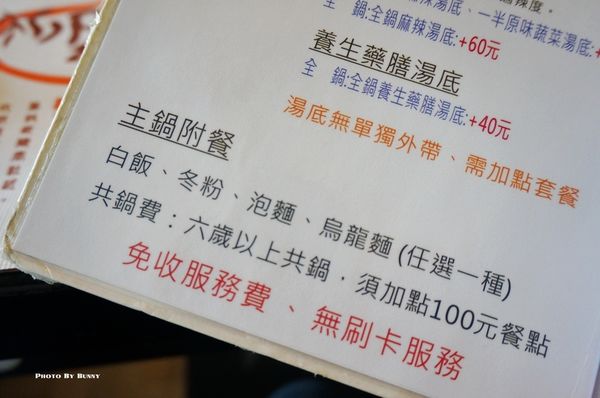 鍋:全鍋麻辣湯底、一半原味蔬菜湯底,+
全 鍋:全鍋麻辣湯底:+60元
養生藥膳湯底
全 鍋:全鍋養生藥膳湯底:+40元
湯底無單獨外帶、需加點套餐
主鍋附餐
白飯、冬粉、泡麵、烏龍麵 (任選一種)
共鍋費：六歲以上共鍋，須加點100元餐點
免收服務費、無刷卡服務
PHOTO BY BUNNY